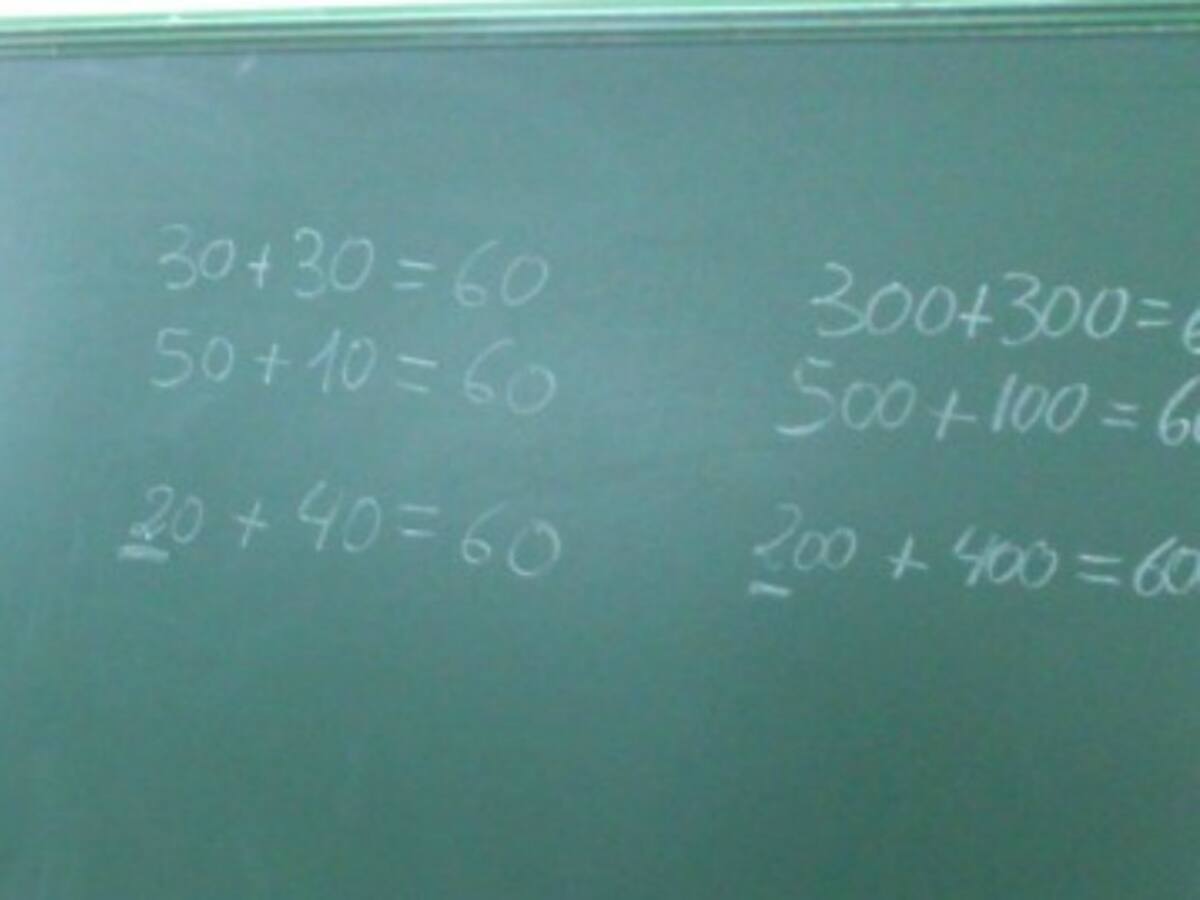 30+30=60
50+10=60
20+40=60
300+300=6
500+100=60
200+400=600